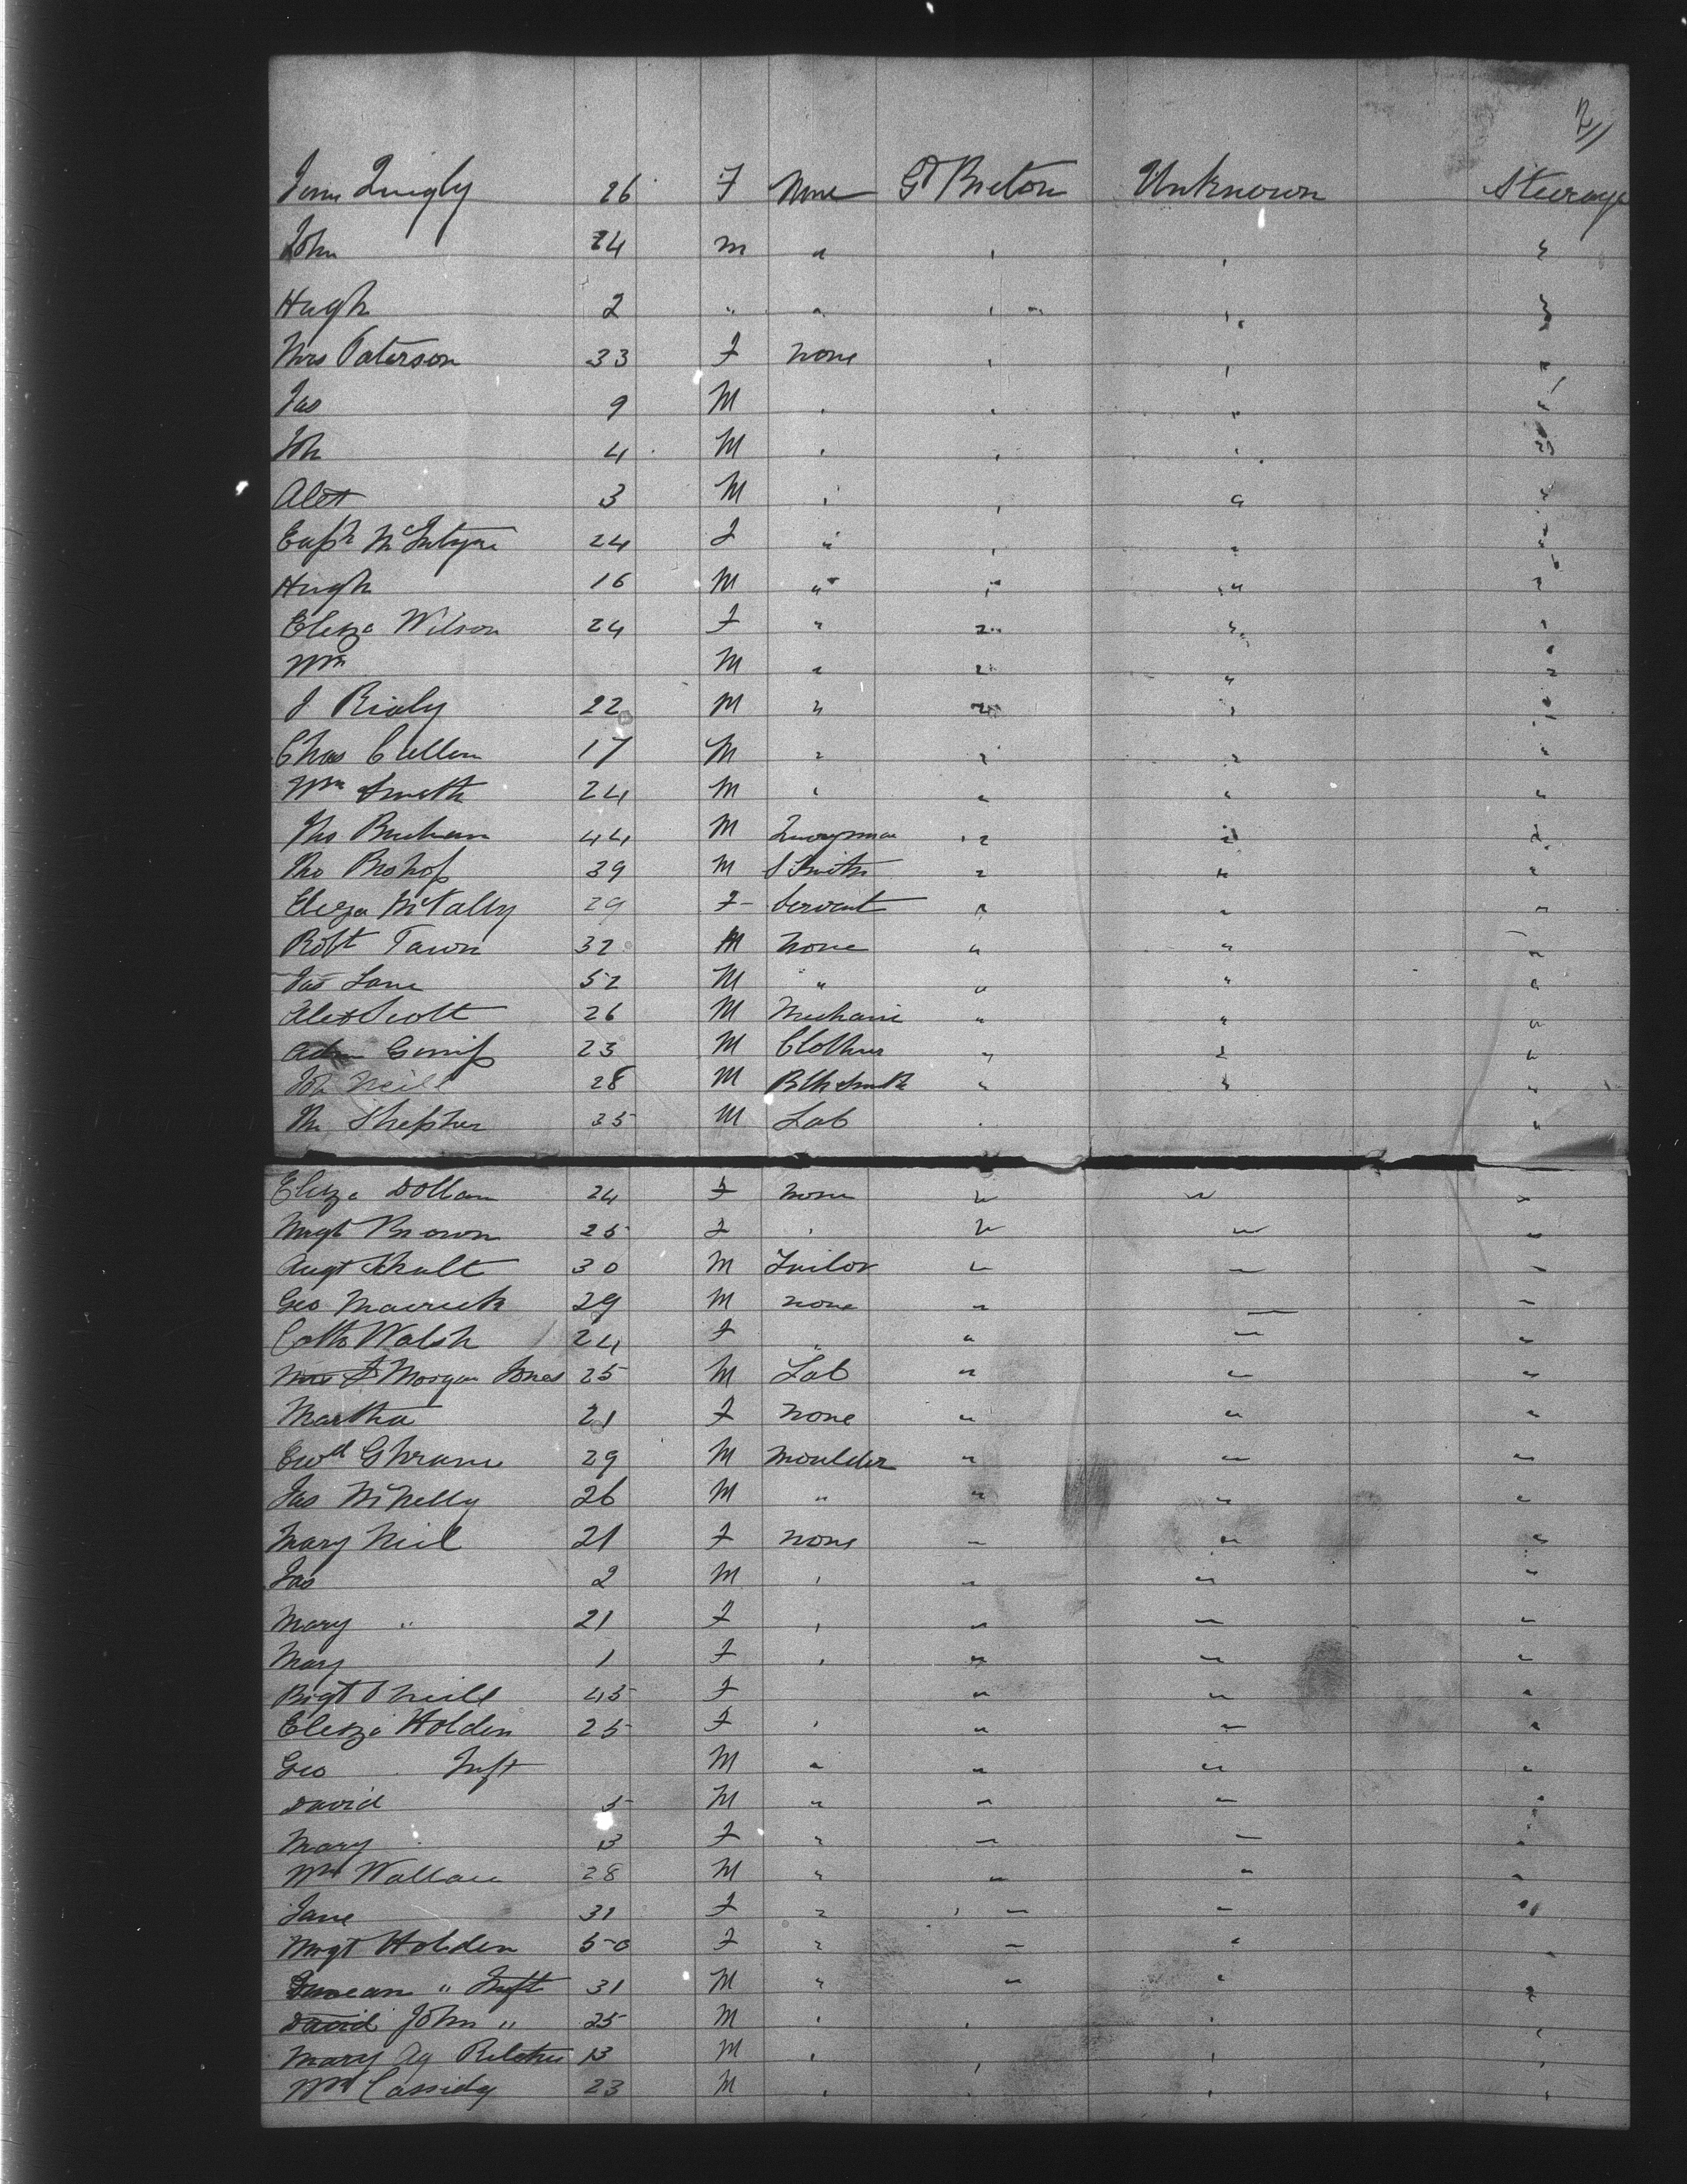 21
Quigly 26 F None Gt Breton Unknown Steerage
John 24 M " " " "
Hugh 2 " " " " "
Mrs Paterson 33 F none " " "
Jas 9 M " " " "
Joh 4 M " " " "
Alex 3 M " " " "
Euph McIntyre 24 F " " " "
Hugh 16 M " " " "
Eliza Wilson 24 F " " " "
Wm M " " " "
J 22 M " " " "
Chas Cullen 17 M " " " "
Wm Smith 24 M " " " "
Ths 44 M " " "
Tho Bishop 39 M S Smith " " "
Eliza 29 F Servant " " "
Robt 32 M none " " "
Jas Lane 52 M " " " "
Alex Scott 26 M Mechanic " " "
23 M Clothier " " "
Joh Neill 28 M Blksmith " " "
35 M Lab " "
Eliza Dollan 24 F none " " "
Mgt Brown 25 F " " " "
Augt 30 M Tailor " " "
Geo 29 M none " " "
Cath Walsh 24 F " " " "
Morgan Jones 25 M Lab " " "
Martha 21 F none " " "
Ewd Ghram 29 M Moulder " " "
Jas McNelly 26 M " " " "
Mary Neil 21 F none " " "
Jas 2 M " " " "
Mary " 21 F " " " "
Mary 1 F " " " "
Brgt O Neill 45 F " " "
Eliza Holden 25 F " " " "
Geo Inft M " " " "
David 5 M " " " "
Mary 13 F " " " "
Wm Wallace 28 M " " " "
Jane 31 F " " " "
Mrgt Holden 50 F " " " "
Duncan " Inft 31 M " " " "
David John " 25 M " " " "
Mary Ag 13 M " " " "
Wm Cassidy 23 M " " " "